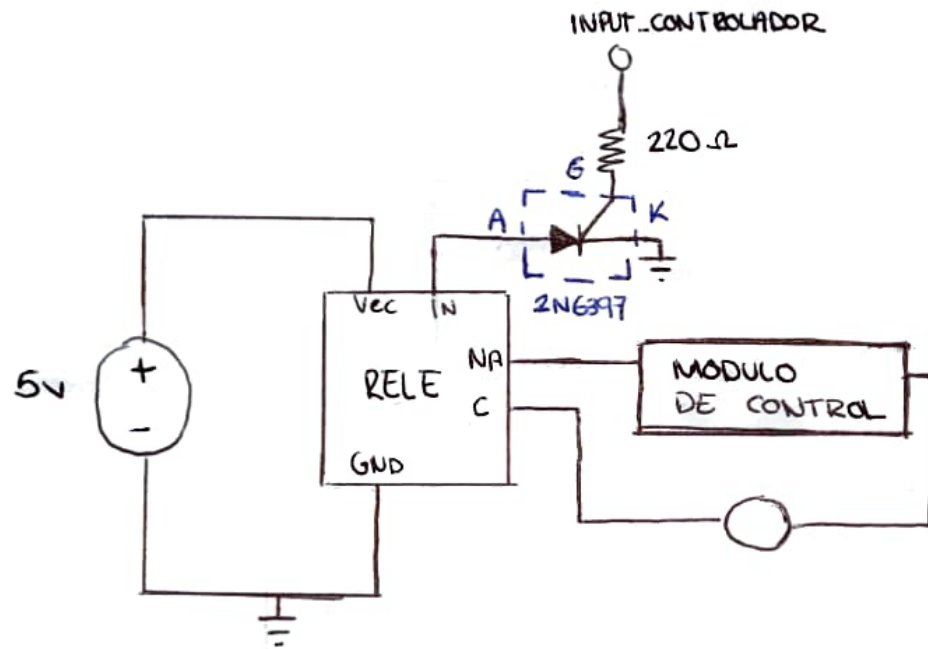 INPUT_CONTROLADOR
220 Ω
G
A
K
2N6397
Vcc
IN
5v
+
-
RELE
NA
C
GND
MÓDULO
DE CONTROL